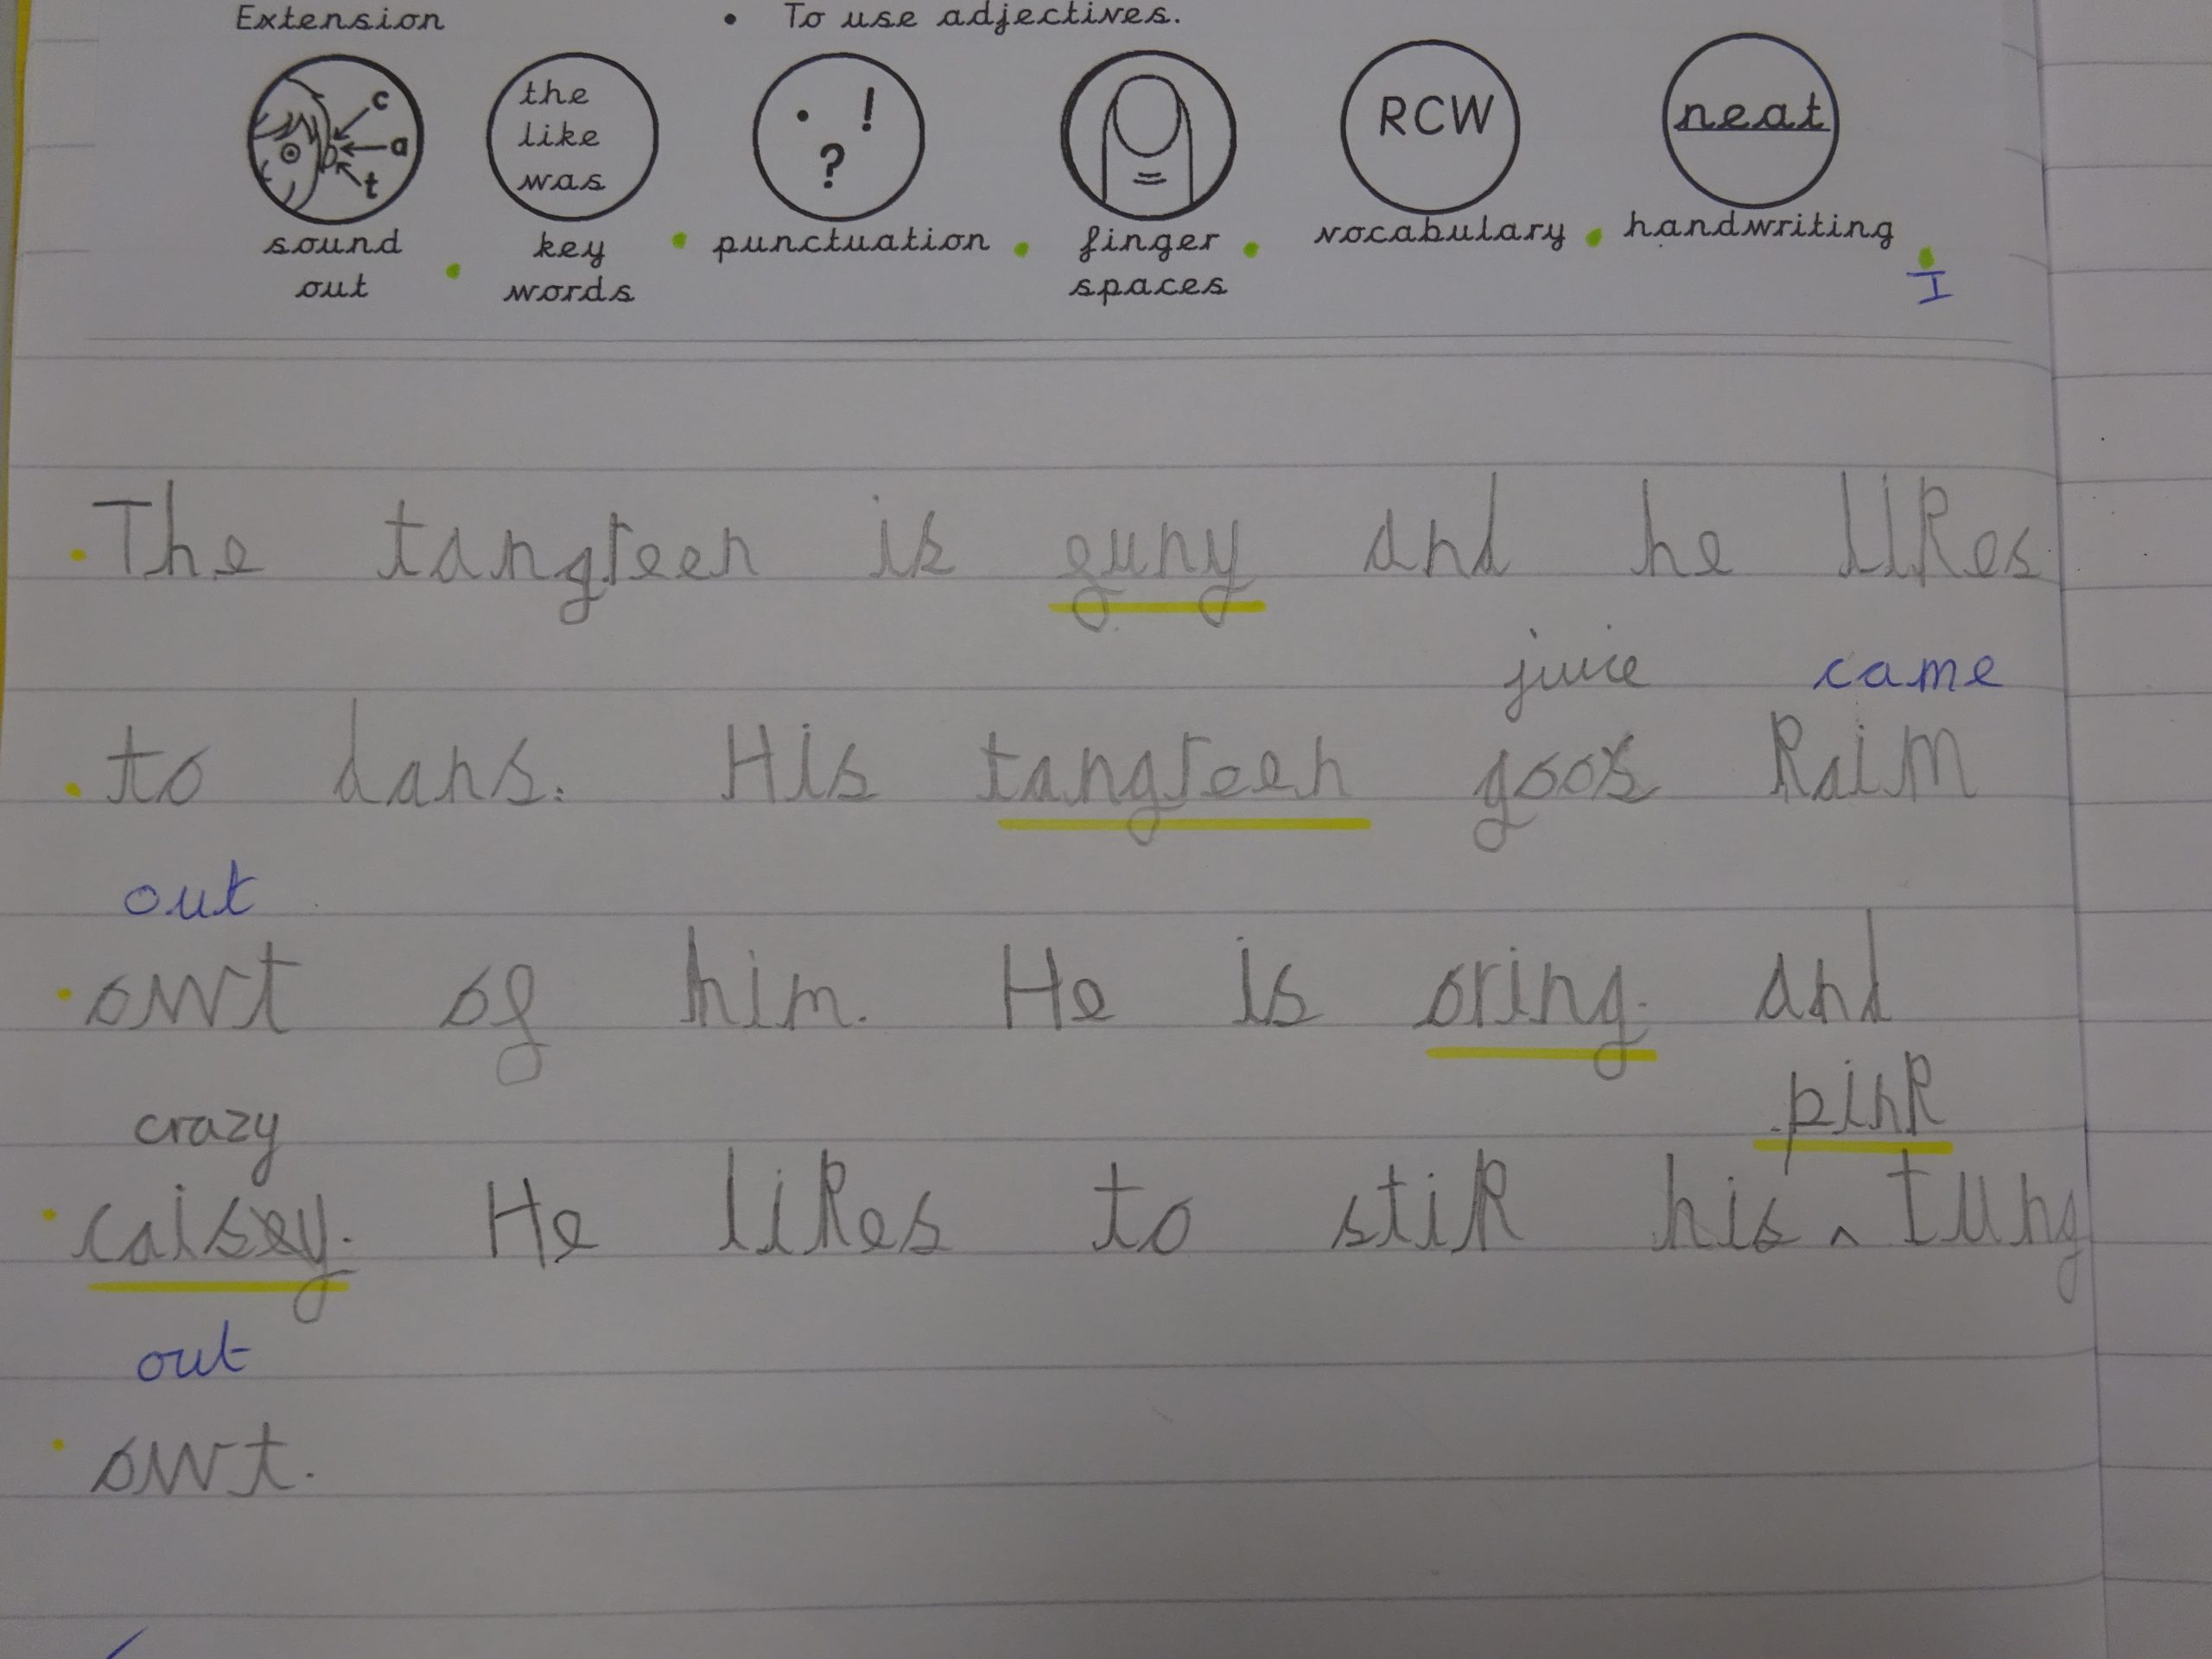 Extension • To use adjectives.
c
a
t
the
like
was
. !
?
RCW
neat
sound out
key words
punctuation
finger spaces
vocabulary
handwriting
I
The tangreen is funy and he likes
juice came
to dans. His tangreen goos Kaim
out
owt of him. He is oring. and
crazy pink
caisey. He likes to stik his ^ tung
out
owt.